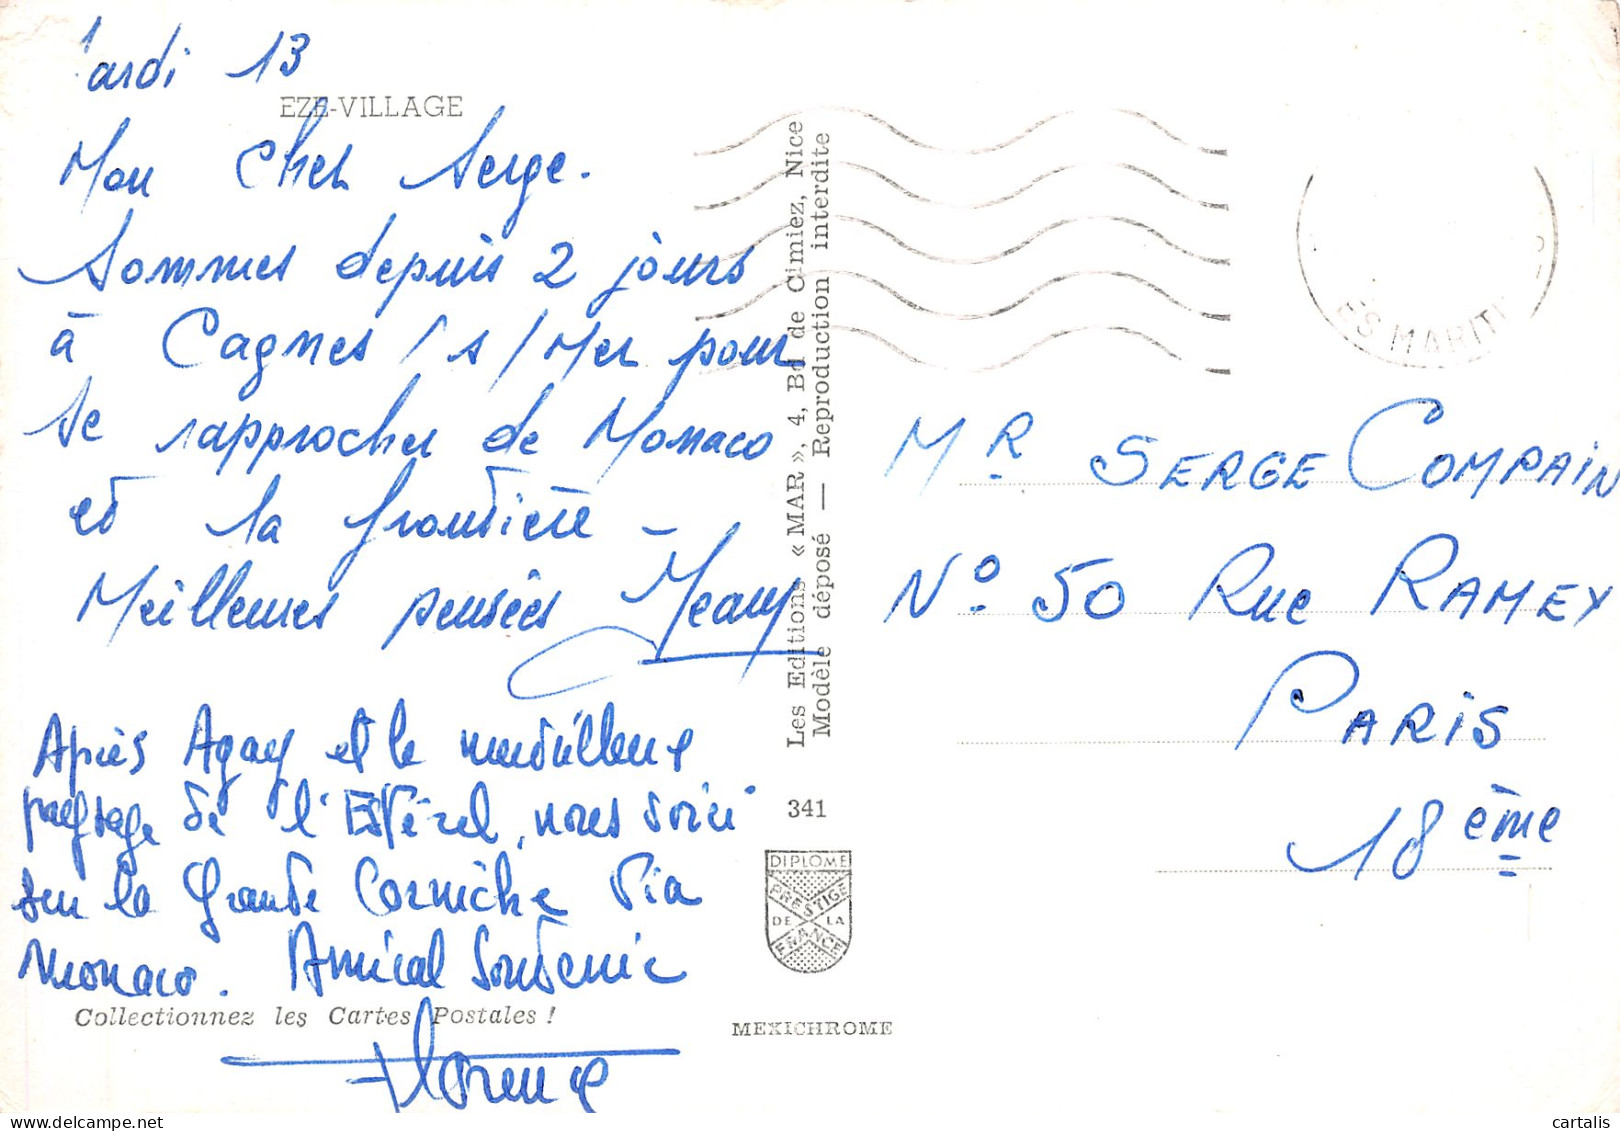 Mardi 13
EZE-VILLAGE
Mon cher Serge.
Sommes depuis 2 jours
à Cagnes / s / Mer pour
se rapprocher de Monaco
et la frontière -
Meilleures pensées
Après Agay et le merveilleux
paysage de l'Estérel, nous voici
sur la Grande Corniche via
Monaco. Amical Souvenir
Collectionnez les Cartes Postales !
Florence
Les Editions « MAR », 4, Bd de Cimiez, Nice
Modèle déposé — Reproduction interdite
341
DIPLOME
PRESTIGE
DE LA
FRANCE
MEXICHROME
ES MARITI
Mr SERGE COMPAIN
No 50 Rue RAMEY
PARIS
18 ème
cartalis